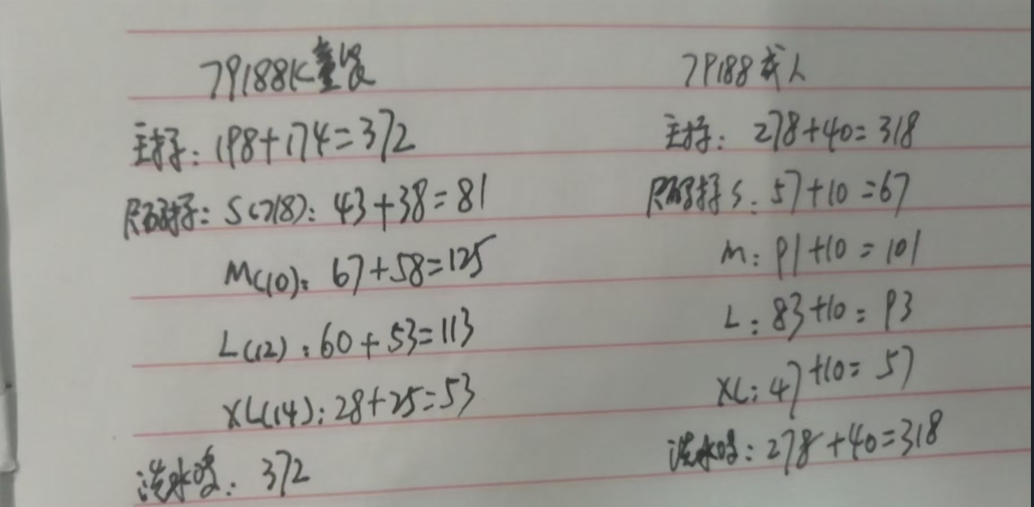 79188K童装
主标:198+174=372
尺码标:S(7/8):43+38=81
M(10):67+58=125
L(12):60+53=113
XL(14):28+25=53
洗水唛:372
79188成人
主标:278+40=318
尺码标S:57+10=67
M:91+10=101
L:83+10=93
XL:47+10=57
洗水唛:278+40=318